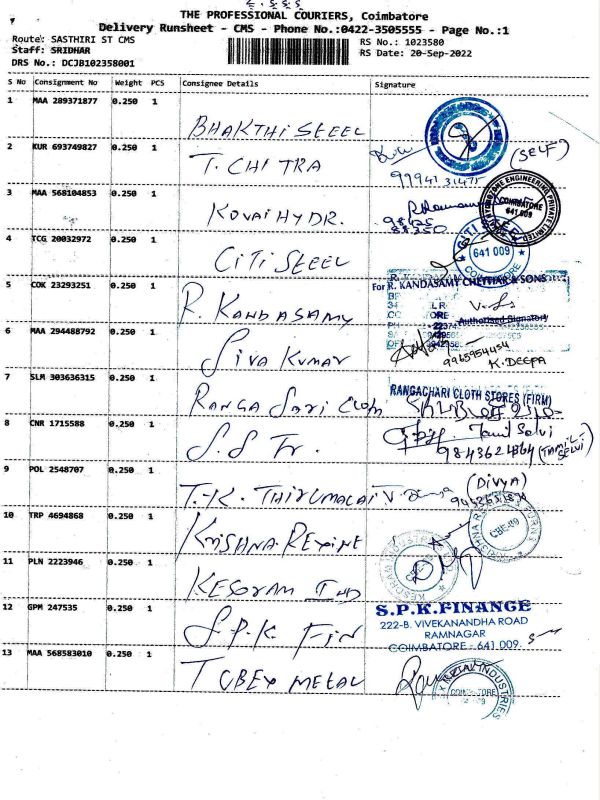 THE PROFESSIONAL COURIERS, Coimbatore
Delivery Runsheet - CMS - Phone No.:0422-3505555 - Page No.:1
Route: SASTHIRI ST CMS
RS No.: 1023580
Staff: SRIDHAR
RS Date: 20-Sep-2022
DRS No.: DCJB102358001
S No Consignment No Weight PCS Consignee Details Signature
1 MAA 289371877 0.250 1 BHAKTHI STEEL
2 KUR 693749827 0.250 1 T. CHITRA (SELF)
3 MAA 568104853 0.250 1 KOVAI HYDR.
COIMBATORE
641 009
4 TCG 20032972 0.250 1 CITI STEEL
CITI STEEL
641 009
COIMBATORE
5 COK 23293251 0.250 1 R. KANDASAMY
For R. KANDASAMY CHETTIAR & SONS
Authorised Signatory
6 MAA 294488792 0.250 1 SIVA KUMAR
9965954454
K. DEEPA
7 SLM 303636315 0.250 1 RANGA CLOTH
RANGACHARI CLOTH STORES (FIRM)
8 CNR 1715588 0.250 1 S.S Fr.
Tamil Selvi
(TAMIL SELVI)
9 POL 2548707 0.250 1 T.K. THIRUMALAI
(DIVYA)
10 TRP 4694868 0.250 1 KRISHNA REXINE
CBE-09
11 PLN 2223946 0.250 1 KESORAM IND
12 GPM 247535 0.250 1 S.P.K. FIN
S.P.K.FINANCE
222-B. VIVEKANANDHA ROAD
RAMNAGAR
COIMBATORE - 641 009.
13 MAA 568583010 0.250 1 TUBEX METAL
INDUSTRIES
COIMBATORE